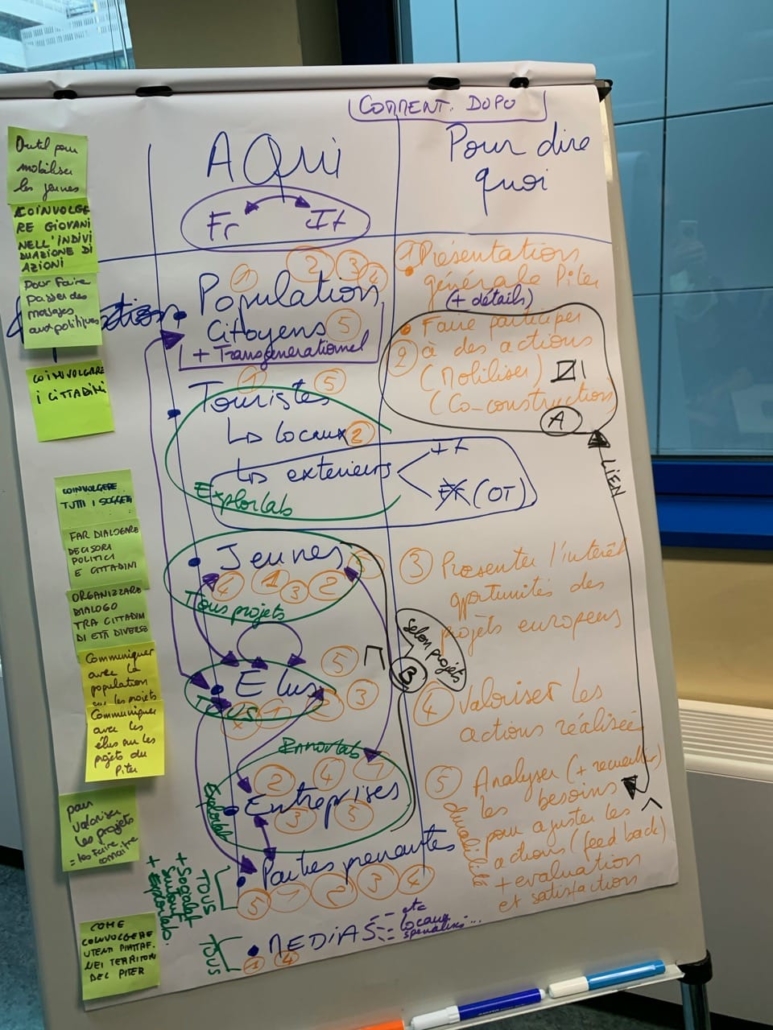 COMMENT. DOPO
A Qui
Pour dire
quoi
Fr It
Outil pour
mobiliser
les jeunes
COINVOLGE
RE GIOVANI
NELL'INDIVI
DUAZIONE DI
AZIONI
Pour faire
passer des
messages
aux politiques
COINVOLGERE
I CITTADINI
COINVOLGERE
TUTTI I SOGGE
FAR DIALOGARE
DECISORI
POLITICI
E CITTADINI
ORGANIZZARE
DIALOGO
TRA CITTADINI
DI ETÀ DIVERSE
Communiquer
avec la
population
sur les projets
Communiquer
avec les
élus sur les
projets du
Piter
pour
valoriser
les projets
= les faire
connaître
COME
COINVOLGERE
UTENTI PIATTAF.
NEI TERRITORI
DEL PITER
1 2 3 4
Population
Citoyens 5
+ Transgenerationnel
1 5
Touristes
Ls locaux 2
Ls exterieurs
(OT)
Explorlab
Jeunes 5
4 1 3 2
Tous projets
Elus 5
TOUS
1 2 3
Innovlab
2 4 1
Entreprises
3 5
Explorlab
Parties prenantes
5 1 2 3 4
TOUS
+ Explorlab.
MEDIAS etc
locaux
specialisés...
1 4
TOUS
1 Présentation
générale Piter
(+ détails)
Faire participer
2 à des actions
(Mobiliser)
(Co-construction)
A
LIEN
3 Presenter l'intérêt
oportunités des
projets europeens
selon projets
B
4 Valoriser les
actions réalisée
5 Analyser (+ recueillir)
les besoins
pour ajuster les
actions (feed back)
+ evaluation
et satisfaction
durabilité